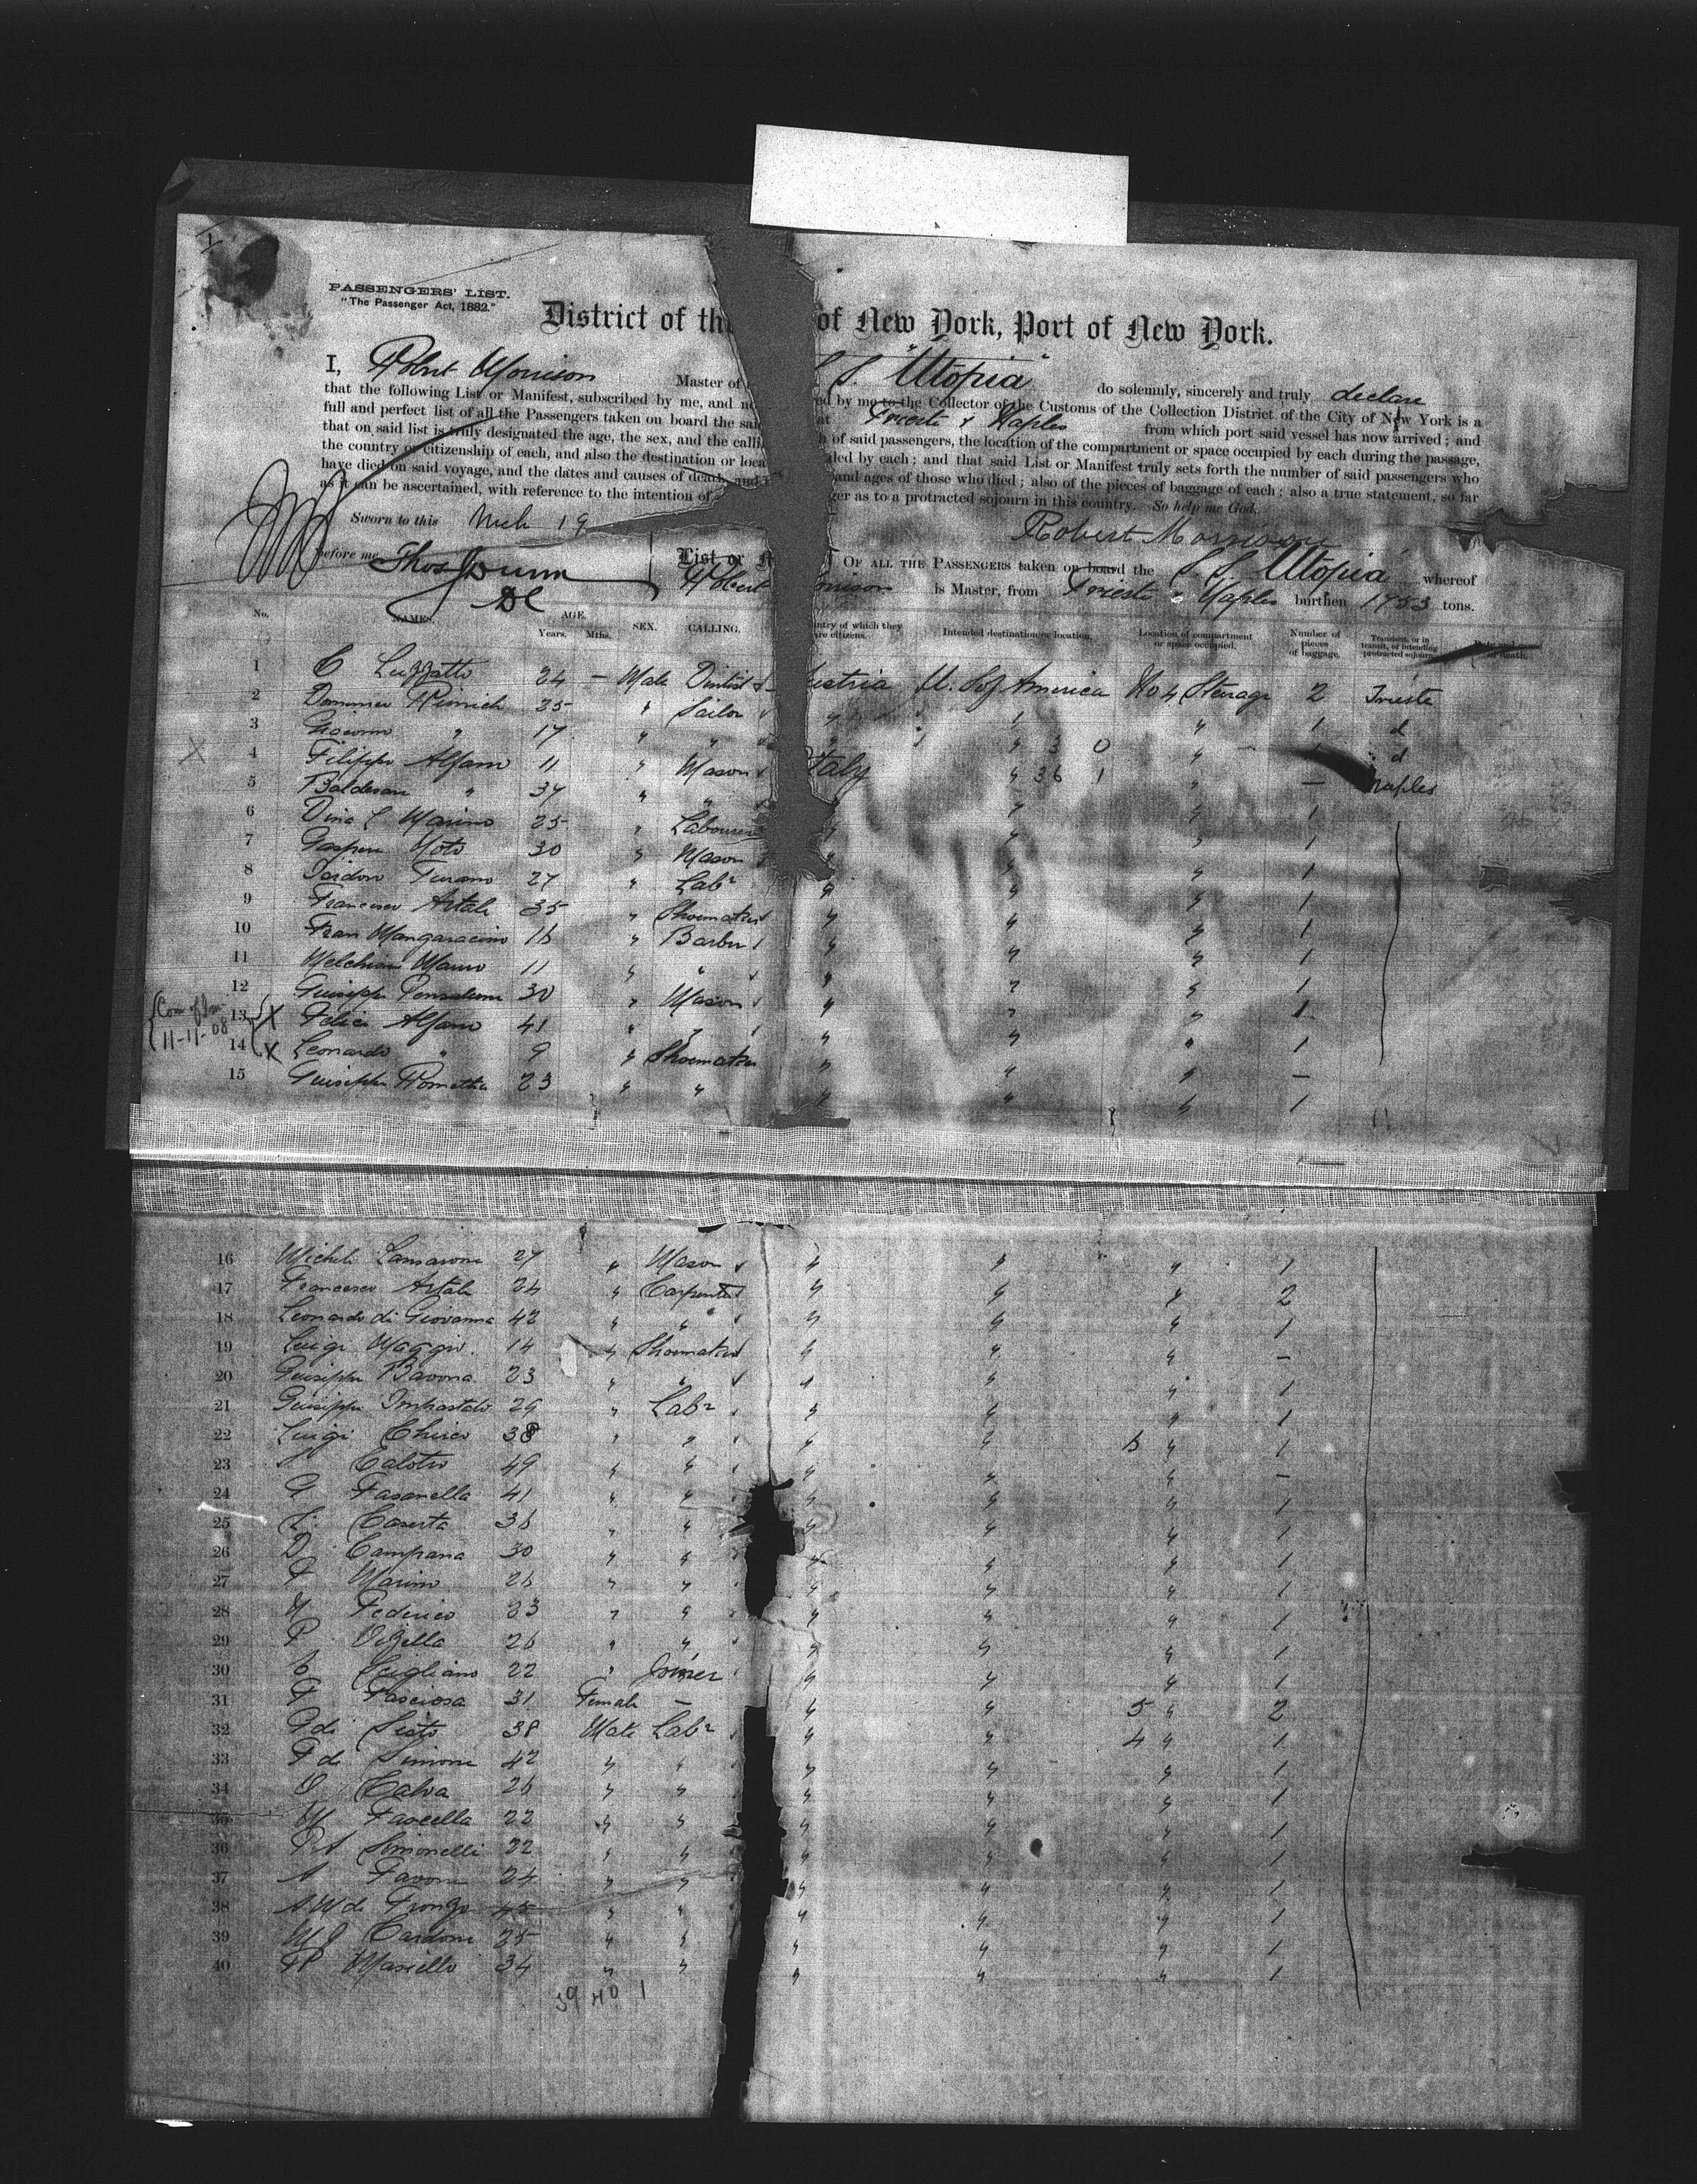 1
PASSENGERS' LIST.
"The Passenger Act, 1882."
District of the of New York, Port of New York.
I, Robert Morrison Master of S. "Utopia" do solemnly, sincerely and truly declare
that the following List or Manifest, subscribed by me, and ed by me to the Collector of the Customs of the Collection District of the City of New York is a
full and perfect list of all the Passengers taken on board the at Trieste & Naples from which port said vessel has now arrived; and
that on said list is truly designated the age, the sex, and the of said passengers, the location of the compartment or space occupied by each during the passage,
the country or citizenship of each, and also the destination or by each; and that said List or Manifest truly sets forth the number of said passengers who
have died on said voyage, and the dates and causes of death, and and ages of those who died; also of the pieces of baggage of each; also a true statement, so far
as it can be ascertained, with reference to the intention of as to a protracted sojourn in this country. So help me God.
Sworn to this Mch 19
Robert Morrison
before me Thos Dunn
DC
List or OF ALL THE PASSENGERS taken on board the S. S. Utopia whereof
Robert is Master, from Trieste & Naples burthen 1753 tons.
No. NAMES. AGE. Years. Mths. SEX. CALLING. Country of which they are citizens. Intended destination or location. Location of compartment or space occupied. Number of pieces of baggage. Transient, or in transit, or intending protracted sojourn.
1 C Luzzatto 24 – Male Austria U. S of America No 4 Steerage 2 Trieste
2 35 " Sailor " " " 1 d
3 Giacomo " 17 " " " " " 1 d
4 Filippo Alfano 11 " Mason Italy " 36 1 " – Naples
5 " 34 " " " " 1
6 Marino 25 " Labourer " " " 1
7 30 " Mason " " " 1
8 27 " Labr " " " 1
9 Francesco Artale 35 " Shoemaker " " " 1
10 Fran Mangaracino 16 " Barber " " " 1
11 Melchior 11 " " " " " 1
12 Guiseppe 30 " Mason " " " 1
Con of Im 11-11-08
13 X Felice Alfano 41 " " " " " 1
14 X Leonardo " 9 " Shoemaker " " " –
15 Guiseppe 23 " " " " " 1
16 Michele 27 " Mason " " " 1
17 Francesco Artale 24 " Carpenter " " " 2
18 Leonardo di Giovanna 42 " " " " " 1
19 Luigi Maggio 14 " Shoemaker " " " –
20 Guiseppe Bavona 23 " " " " " 1
21 Guiseppe Impastato 29 " Labr " " " 1
22 Luigi Chirco 38 " " " " B " 1
23 49 " " " " " –
24 G Fasanella 41 " " " " " 1
25 L Caserta 36 " " " " " 1
26 D Campana 30 " " " " " 1
27 F Marino 26 " " " " " 1
28 M Federico 33 " " " " " 1
29 P 26 " " " " " 1
30 C Scigliano 22 " Joiner " " " 1
31 F Pasciosa 31 Female – " " 5 " 2
32 G di Sisto 38 Male Labr " " 4 " 1
33 F de Simone 42 " " " " " 1
34 O Calva 26 " " " " " 1
35 M 22 " " " " " 1
36 P A Simonelli 22 " " " " " 1
37 A Favone 24 " " " " " 1
38 A M di 45 " " " " " 1
39 M G Cardone 35 " " " " " 1
40 P Masiello 34 " " " " " 1
39 40 1